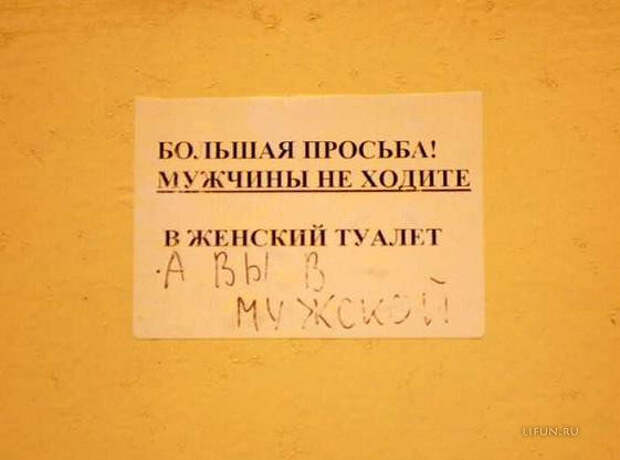 БОЛЬШАЯ ПРОСЬБА!
МУЖЧИНЫ НЕ ХОДИТЕ
В ЖЕНСКИЙ ТУАЛЕТ
А ВЫ В
МУЖСКОЙ!
LIFUN.RU